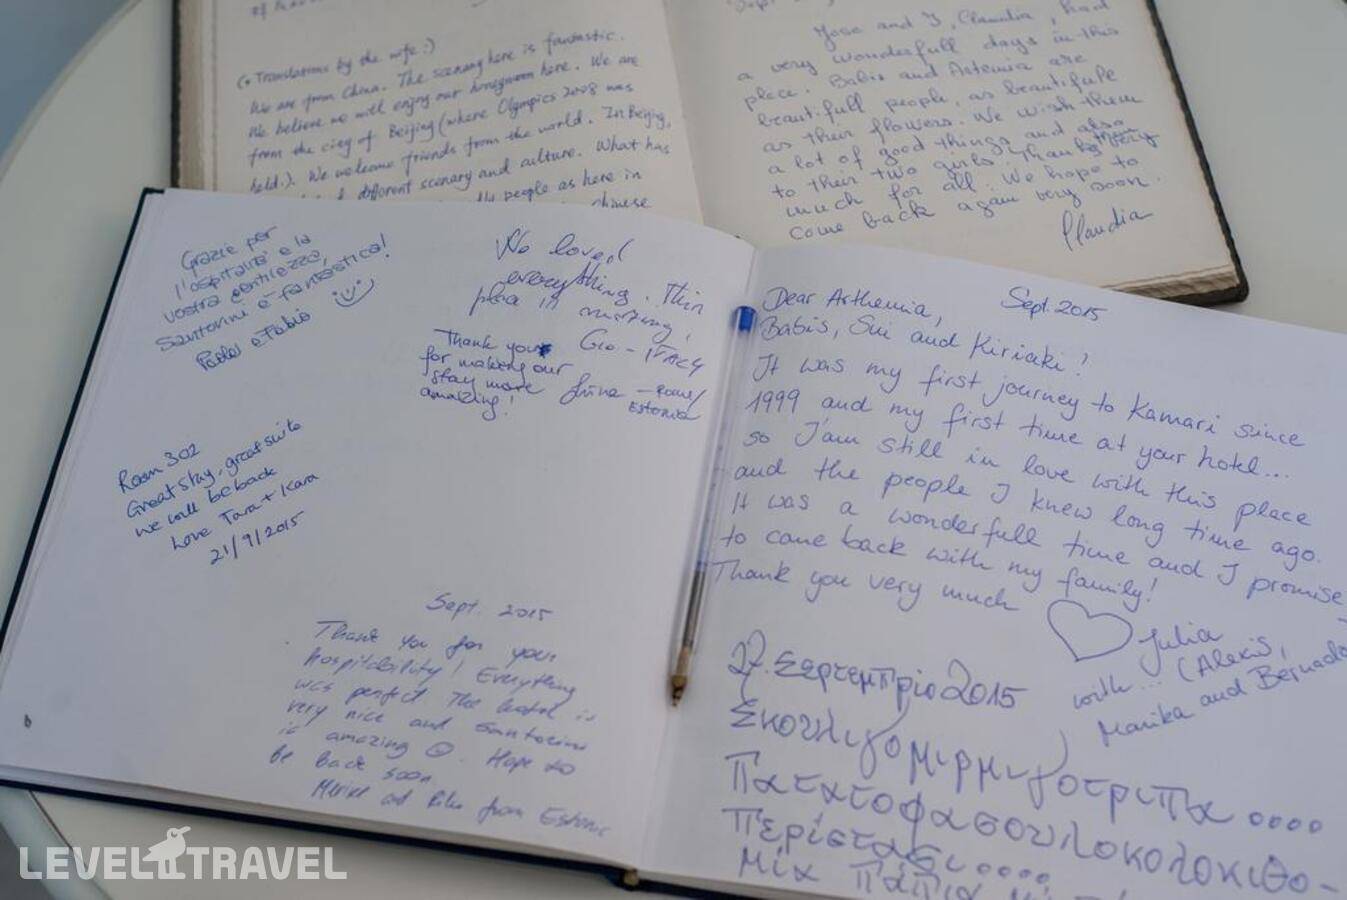 (* Translations by the wife :)
We are from China. The scenary here is fantastic.
We believe we will enjoy our honeymoon here. We are
from the city of Beijing (where Olympics 2008 was
held.). We welcome friends from the world. In Beijing,
different scenary and culture. What has
people as here in
chinese
Jose and I, Claudia, had
a very wonderfull days in this
place. Babis and Artemia are
beautifull people, as beautifule
as their flowers. We wish them
a lot of good things and also
to their two girls. Thank very
much for all. We hope to
come back again very soon.
Claudia
Grazie per
l'ospitalità e la
vostra gentilezza,
Santorini è fantastica!
e Fabio
We loved
everything. This
place is amazing!
Gio - ITALY
Thank you
for making our
stay more
amazing!
Estonia
Room 302
Great stay, great suite
we will be back
Love Tara + Kara
21/9/2015
Sept. 2015
Thank you for your
hospitability! Everything
was perfect. The hotel is
very nice and Santorini
is amazing ☺. Hope to
be back soon
from Estonia
6
Sept. 2015
Dear Arthemia,
Babis, Sui and Kiriaki!
It was my first journey to Kamari since
1999 and my first time at your hotel...
so I'am still in love with this place
and the people I knew long time ago.
It was a wonderfull time and I promise
to come back with my family!
Thank you very much
Julia
with... (Alexis,
Marika and
27. Σερτεμπριο 2015
Σκουλικομιρμιγοτριπα....
Πατατοφασουλοκολοκιθο-
LEVEL TRAVEL